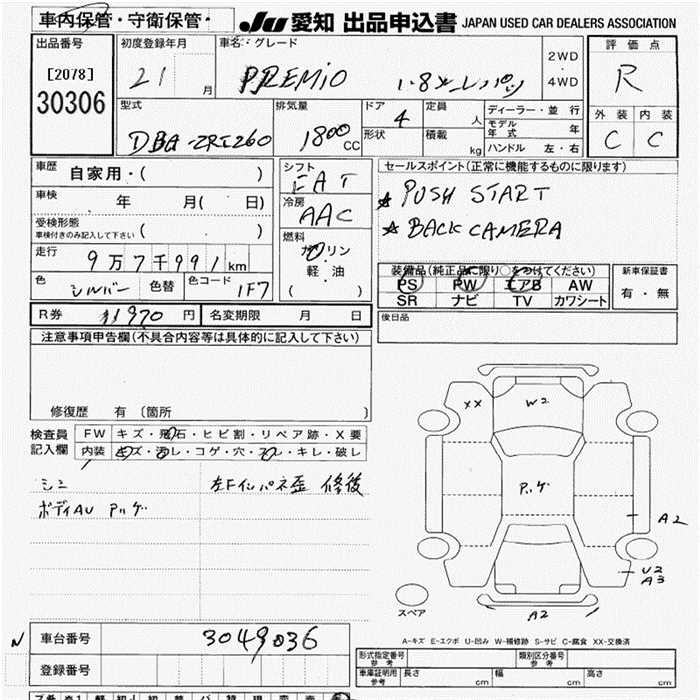 車内保管・守衛保管・
JU 愛知 出品申込書 JAPAN USED CAR DEALERS ASSOCIATION
出品番号
[2078]
30306
初度登録年月
21 月
車名・グレード
PREMIO 1.8
2WD
・
4WD
評価点
R
外装 内装
C C
型式
DBA-ZRT260
排気量
1800 CC
ドア 4
形状
定員 人
積載 kg
ディーラー・並行
モデル年式 年
ハンドル 左・右
車歴 自家用・( )
車検 年 月( 日)
受検形態
車検付きのみ記入して下さい ( )
走行 9万7千991km
色 シルバー 色替 色コード 1F7
シフト
FAT
冷房
AAC
燃料
ガソリン
軽・油
( )
セールスポイント(正常に機能するものに限ります)
☆ PUSH START
☆ BACK CAMERA
装備品(純正品に限り○をつけてください)
PS PW エアB AW
SR ナビ TV カワシート
新車保証書
有・無
R券 11970 円 名変期限 月 日
後日品
注意事項申告欄(不具合内容等は具体的に記入して下さい)
修復歴 有 〔箇所 〕
検査員 FW キズ・飛石・ヒビ割・リペア跡・X要
記入欄 内装 キズ・汚レ・コゲ・穴・スレ・キレ・破レ
シミ 左Fインパネ歪 修後
ボディAU Pハゲ
XX
W2
Pハゲ
A2
U2
A3
A2
スペア
A-キズ E-エクボ U-凹み W-補修跡 S-サビ C-腐食 XX-交換済
N 車台番号 3049036
登録番号
形式指定番号 参考
類別区分番号 参考
車庫証明用 参考 長さ cm 幅 cm 高さ cm